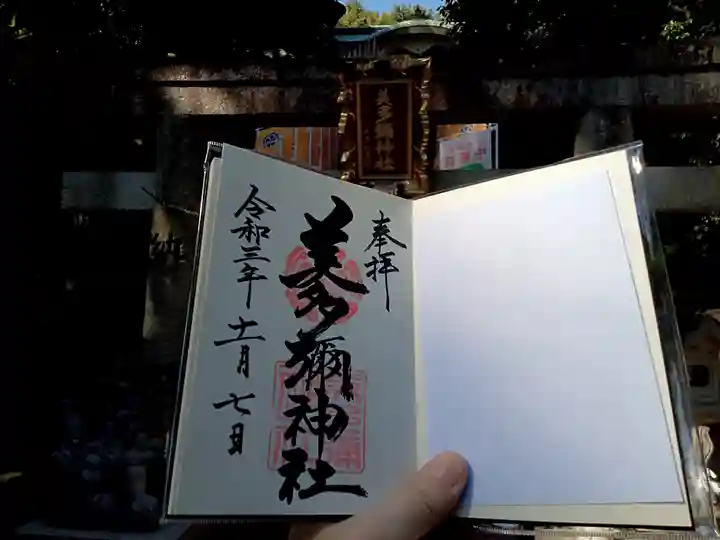 美多彌神社
奉拝
美多彌神社
令和三年十一月七日